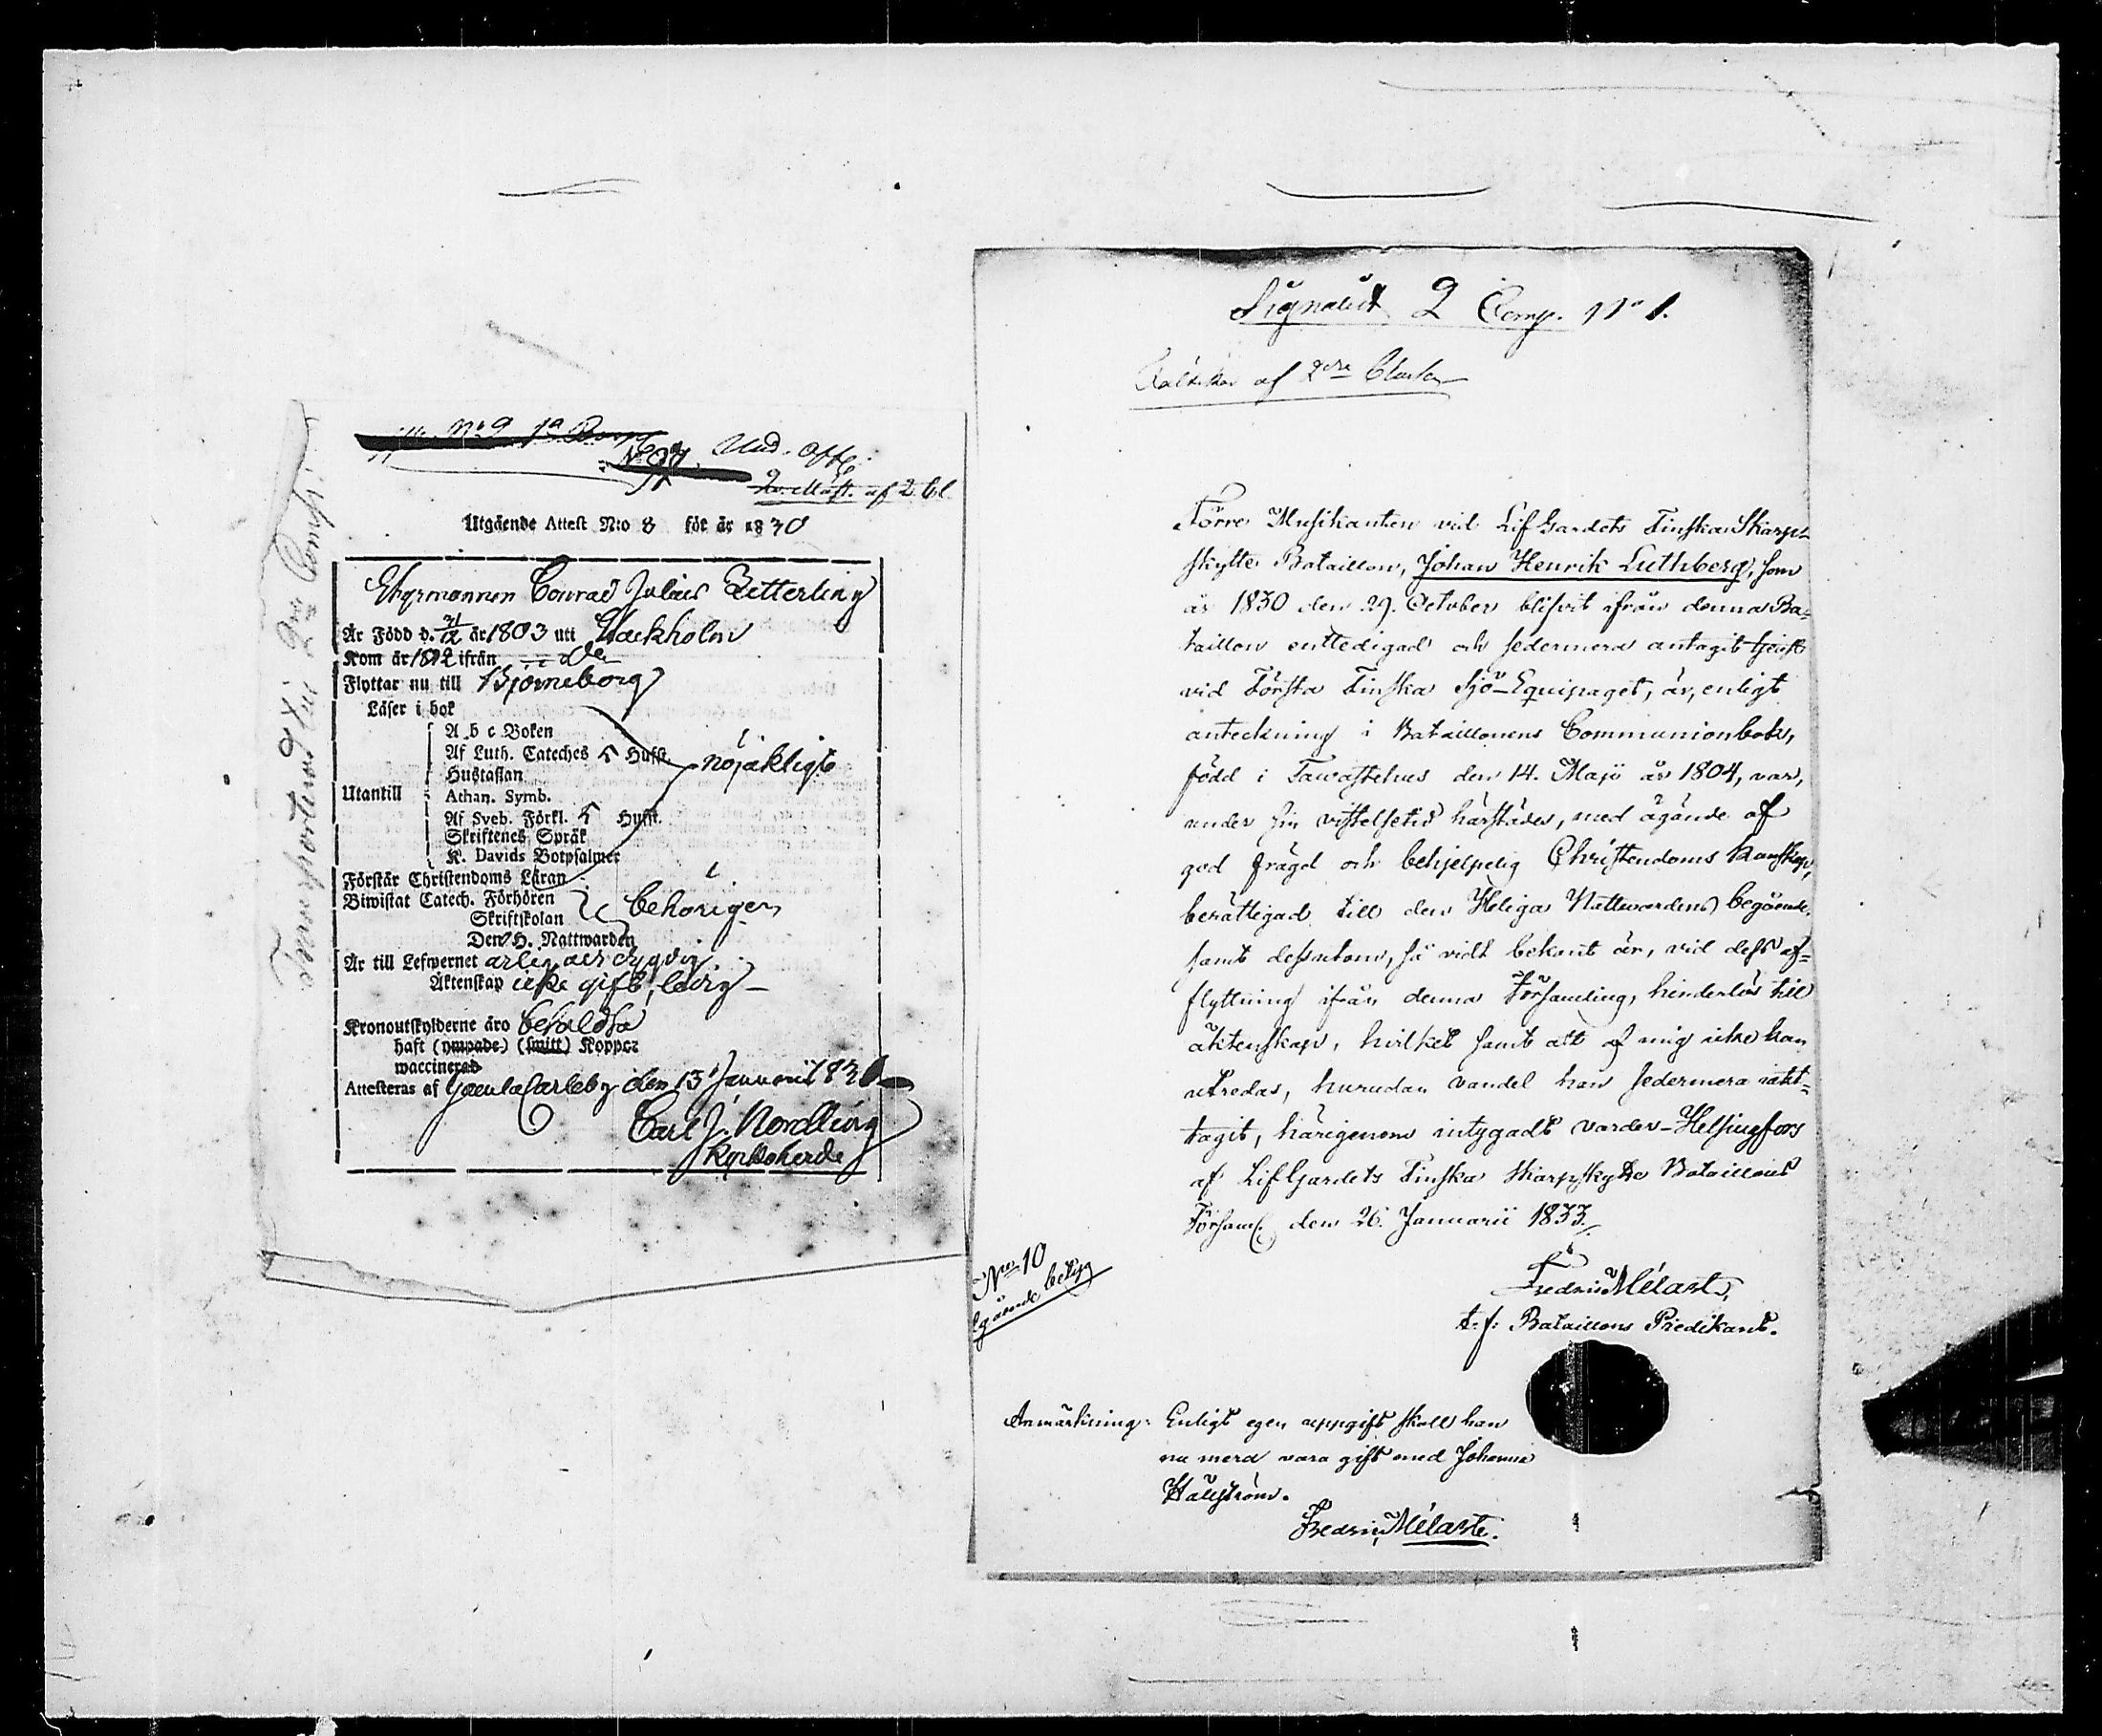 Und. Offc:
af 2 Cl.
Utgående Attest N:o 8 för år 1830
Conrad Julius Zitterling
Är Född d. 21/2 år 1803 uti Stockholm
Kom år 1812 ifrån
Flyttar nu till Björneborg
Läser i bok
A b c Boken
Af Luth. Cateches 5 Hufst.
nöjaktigt
Hustaflan
Utantill
Athan. Symb.
Af Sveb. Förkl. 5 Hufst.
Skriftenes Språk
K. Davids Botpsalmer
Förstår Christendoms Läran
Biwistat Catech. Förhören
behörigen
Skriftskolan
Den H. Nattwarden
Är till Lefwernet ärlig och dygdig
Äktenskap icke gift, ledig
Kronoutskylderne äro betalda
haft (ympade) (smitt) Koppor
waccinerad
Attesteras af Gamla Carleby den 13 Januarii 1830
Carl J. Nordling
Kyrkoherde
Transporterad till 2dra Comp:
Signalist 2 Comp. No 1.
af 2dra Classen
Förre Musikanten vid LifGardets Finska Skarp-
skytte Bataillon, Johan Henrik Luthberg, som
år 1830 den 29. October blifvit ifrån denna Ba-
taillon entledigad och sedermera antagit tjenst
vid Första Finska Sjö-Equipaget, är, enligt
anteckning i Bataillonens Communionbok,
född i Tawastehus den 14. Maji år 1804, var,
under sin vistelsetid härstädes, med ägande af
god frägd och behjelpelig Christendoms kunskap,
berättigad till den Heliga Nattwardens begående,
samt dessutom, så vidt bekant är, vid dess af-
flyttning ifrån denna Församling, hinderlös till
äktenskap, hvilket samt att af mig icke kan
utredas, hurudan vandel han sedermera iakt-
tagit, härigenom intygadt varder. Helsingfors
af LifGardets Finska Skarpskytte Bataillons
Församl. den 26. Januarii 1833.
Fredric Mélart,
t. f. Bataillons Predikant.
No 10
Anmärkning: Enligt egen uppgift skall han
nu mera vara gift med Johanna
Hällström.
Fredric Mélart.